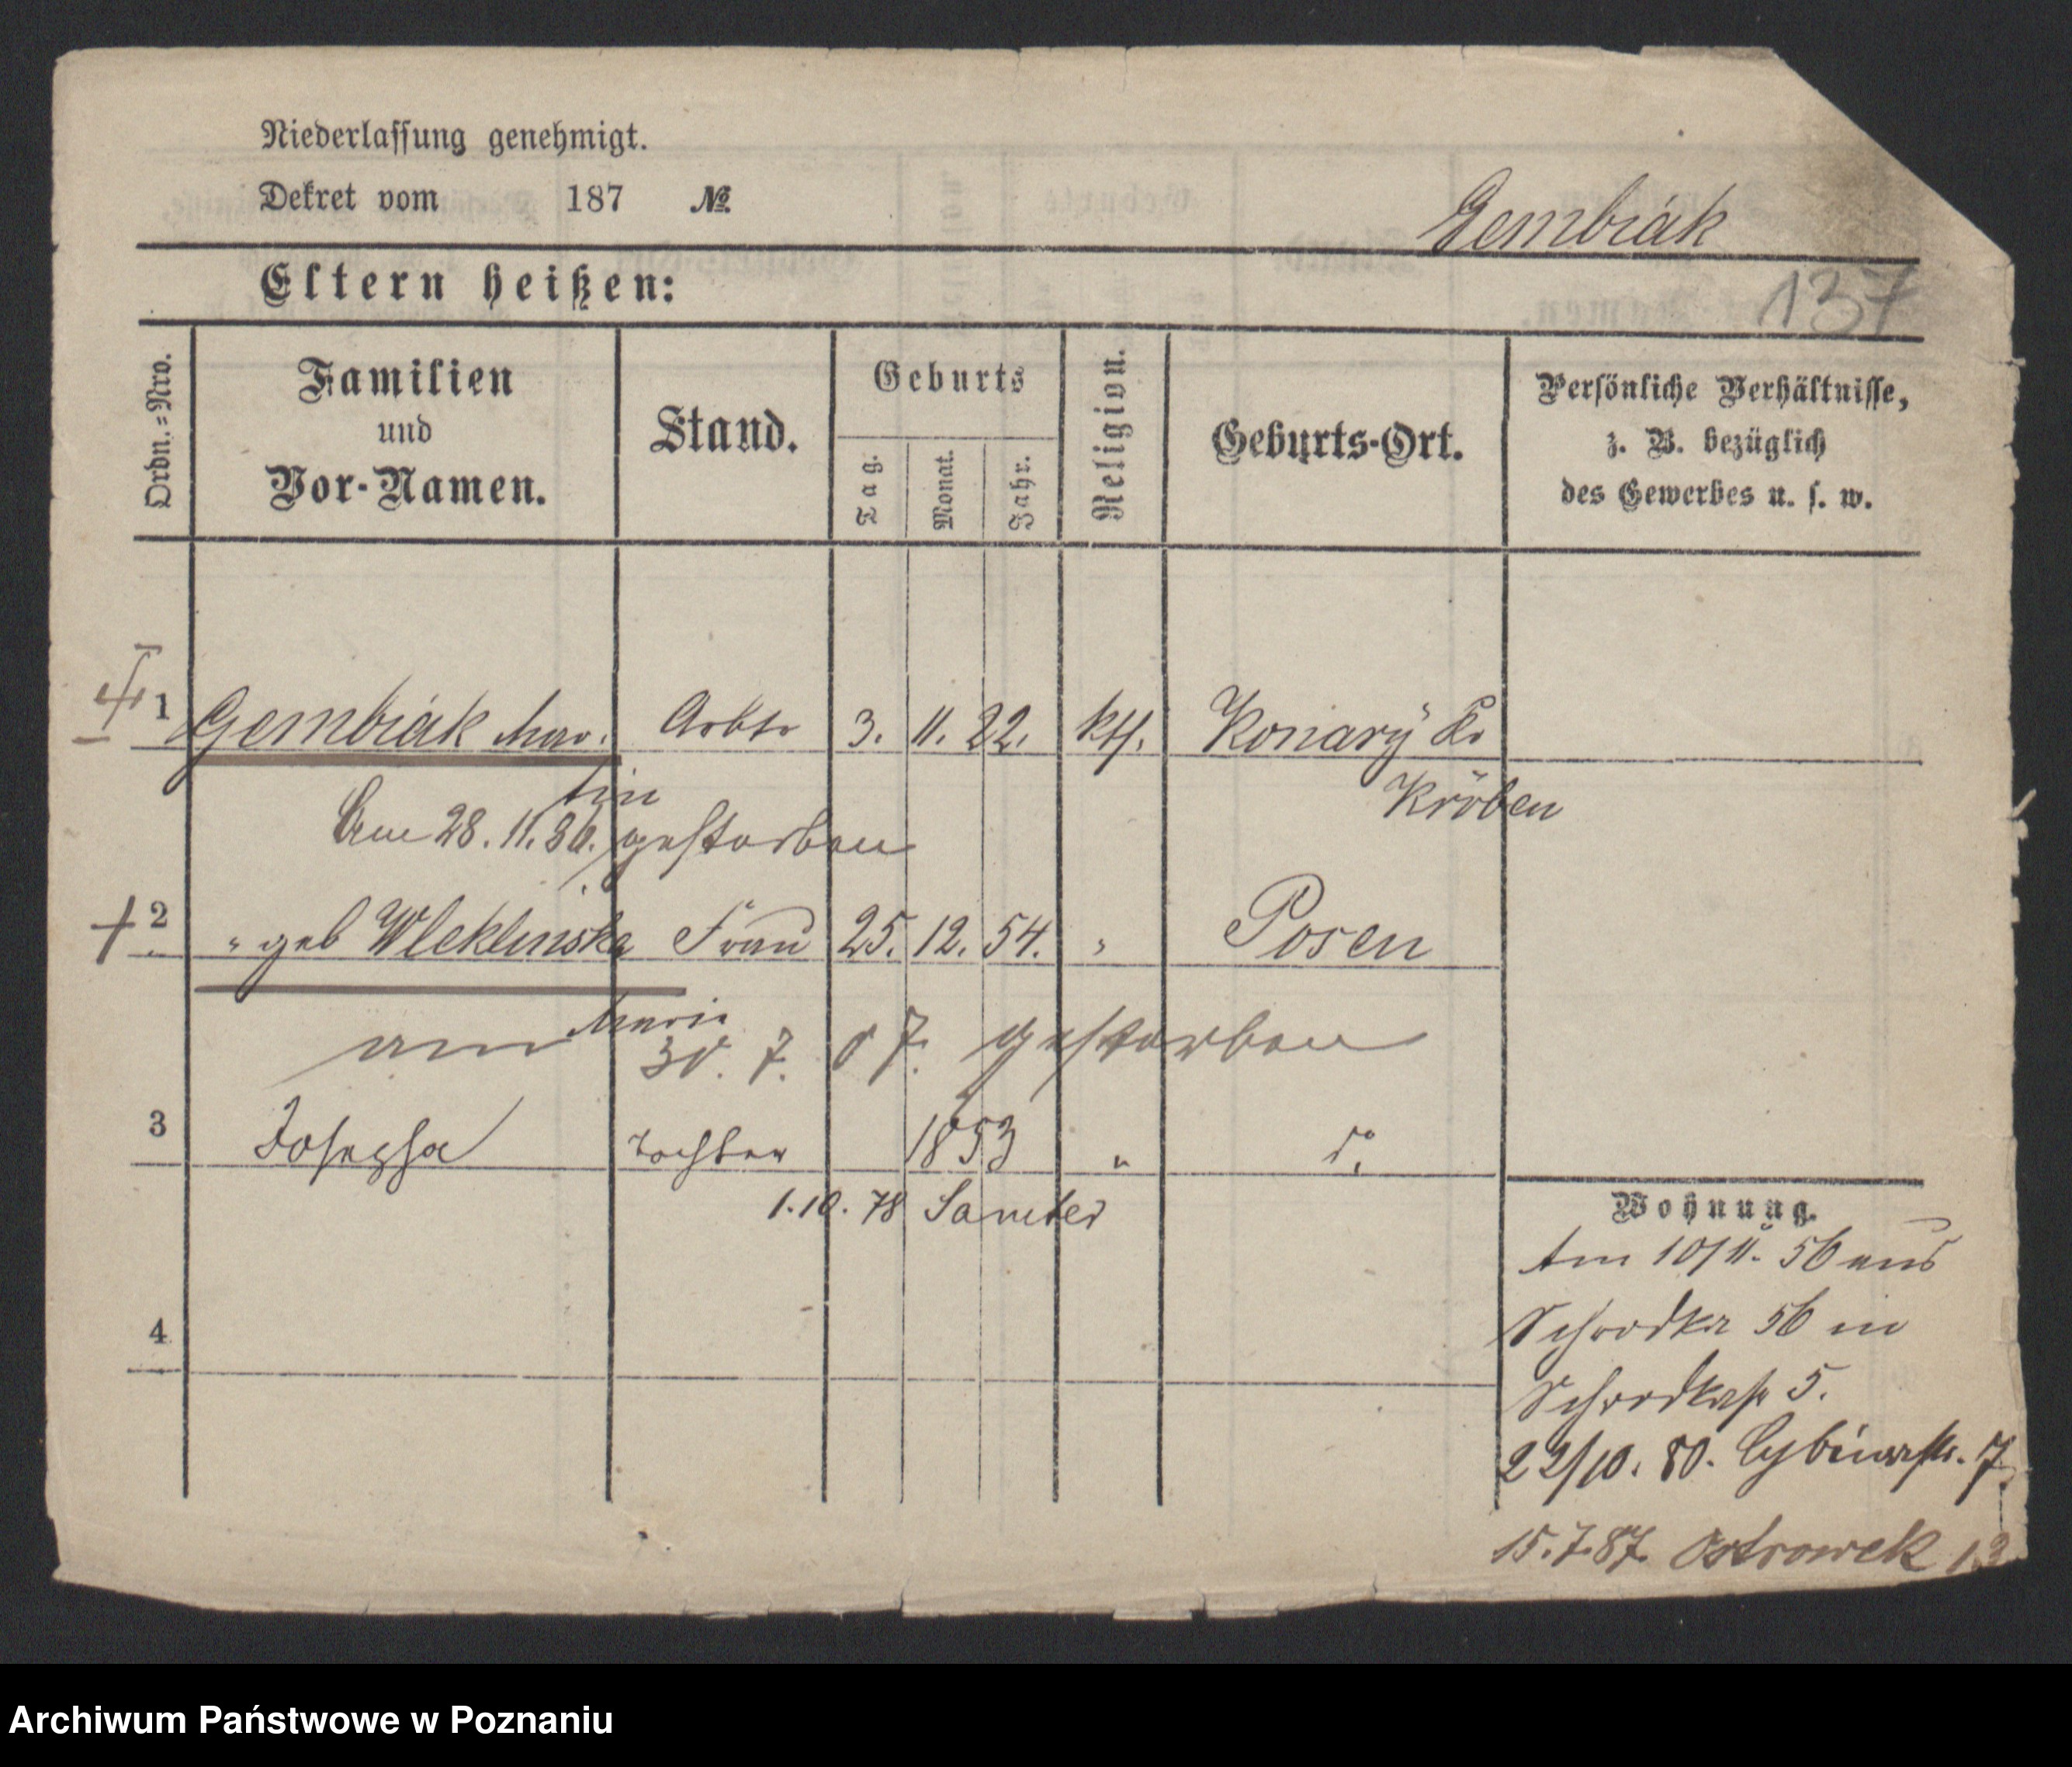 Niederlassung genehmigt.
Dekret vom 187 №
Gembiak
137
Eltern heißen:
Ordn.=Nro.
Familien
und
Vor-Namen.
Stand.
Geburts
Tag.
Monat.
Jahr.
Religion.
Geburts-Ort.
Persönliche Verhältnisse,
z. B. bezüglich
des Gewerbes u. s. w.
1 Gembiak Mar. Arbtr 3. 11. 22. kth. Konary Kr
tin Kröben
Am 28. 11. 86. gestorben
2 " geb Wleklinska Frau 25. 12. 54. " Posen
Marie
am 30. 7. 07. gestorben
3 Josepha Tochter 1853 " do.
1.10.78 Samter
4
Wohnung.
Am 10/11. 56 aus
Schrodka 56 in
Schrodkastr 5.
22/10. 80. Cybinastr. 7.
15.7.87. Ostrowek 13
Archiwum Państwowe w Poznaniu